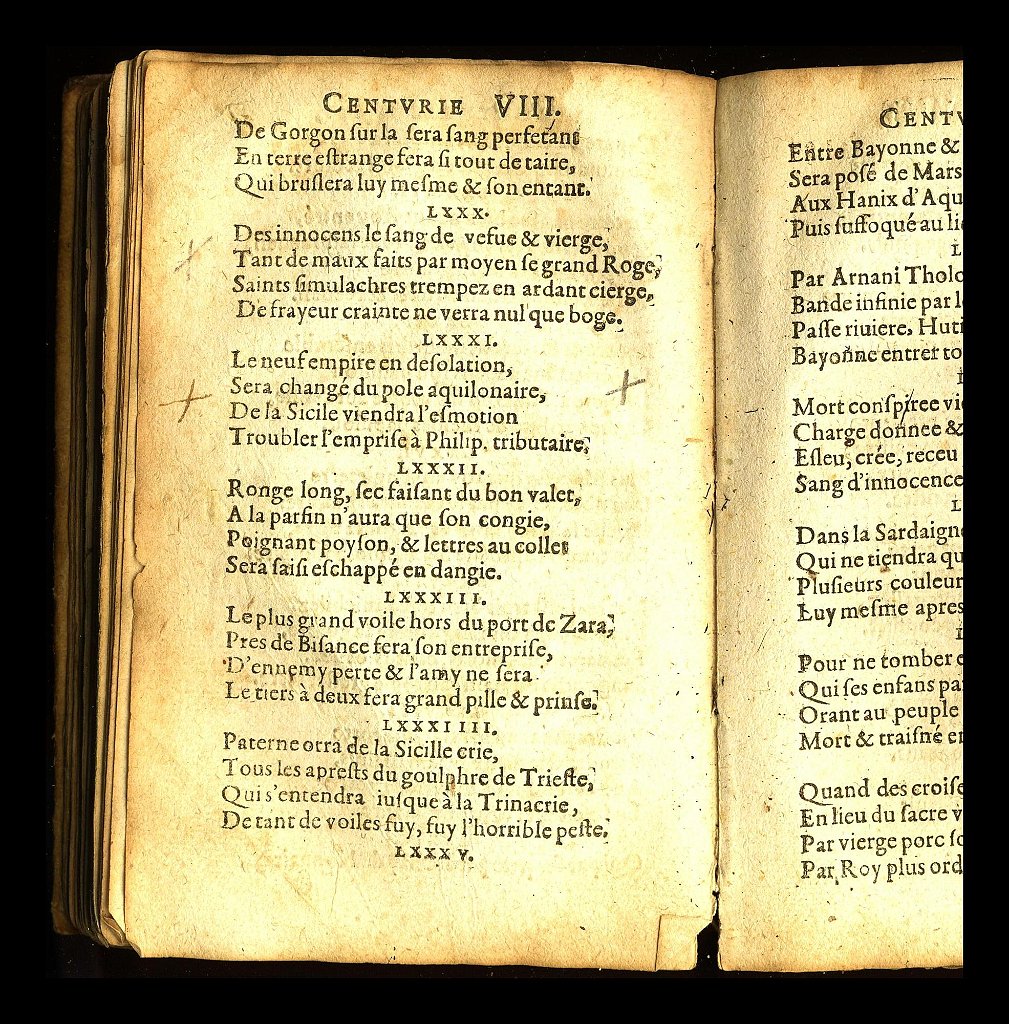 CENTVRIE VIII.
De Gorgon ſur la ſera ſang perfetant
En terre eſtrange fera ſi tout de taire,
Qui bruſlera luy meſme & ſon entant.
LXXX.
Des innocens le ſang de vefue & vierge,
Tant de maux faits par moyen ſe grand Roge,
Saints ſimulachres trempez en ardant cierge,
De frayeur crainte ne verra nul que boge.
LXXXI.
Le neuf empire en deſolation,
Sera changé du pole aquilonaire,
De la Sicile viendra l'eſmotion
Troubler l'empriſe à Philip. tributaire,
LXXXII.
Ronge long, ſec faiſant du bon valet,
A la parfin n'aura que ſon congie,
Poignant poyſon, & lettres au collet
Sera ſaiſi eſchappé en dangie.
LXXXIII.
Le plus grand voile hors du port de Zara,
Pres de Biſance fera ſon entrepriſe,
D'ennemy perte & l'amy ne ſera
Le tiers à deux fera grand pille & prinſe.
LXXXIIII.
Paterne orra de la Sicille crie,
Tous les apreſts du goulphre de Trieſte,
Qui s'entendra iuſque à la Trinacrie,
De tant de voiles fuy, fuy l'horrible peſte.
LXXXV.
CENTV
Entre Bayonne &
Sera poſé de Mars
Aux Hanix d'Aqu
Puis ſuffoqué au li
L
Par Arnani Tholo
Bande infinie par l
Paſſe riuiere, Huti
Bayonne entrer to
Mort conſpiree vi
Charge donnee &
Eſleu, crée, receu
Sang d'innocence
L
Dans la Sardaign
Qui ne tiendra qu
Pluſieurs couleur
Luy meſme apres
Pour ne tomber e
Qui ſes enfans pa
Orant au peuple
Mort & traiſné en
Quand des croiſe
En lieu du ſacre v
Par vierge porc ſo
Par Roy plus ord